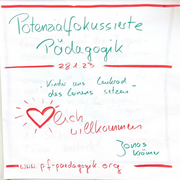 Potenzialfokussierte
Pädagogik
28.1.23
"Kinder ans Lenkrad
des Lernens setzen"
❤lich
willkommen
Jonas
www.pf-paedagogik.org